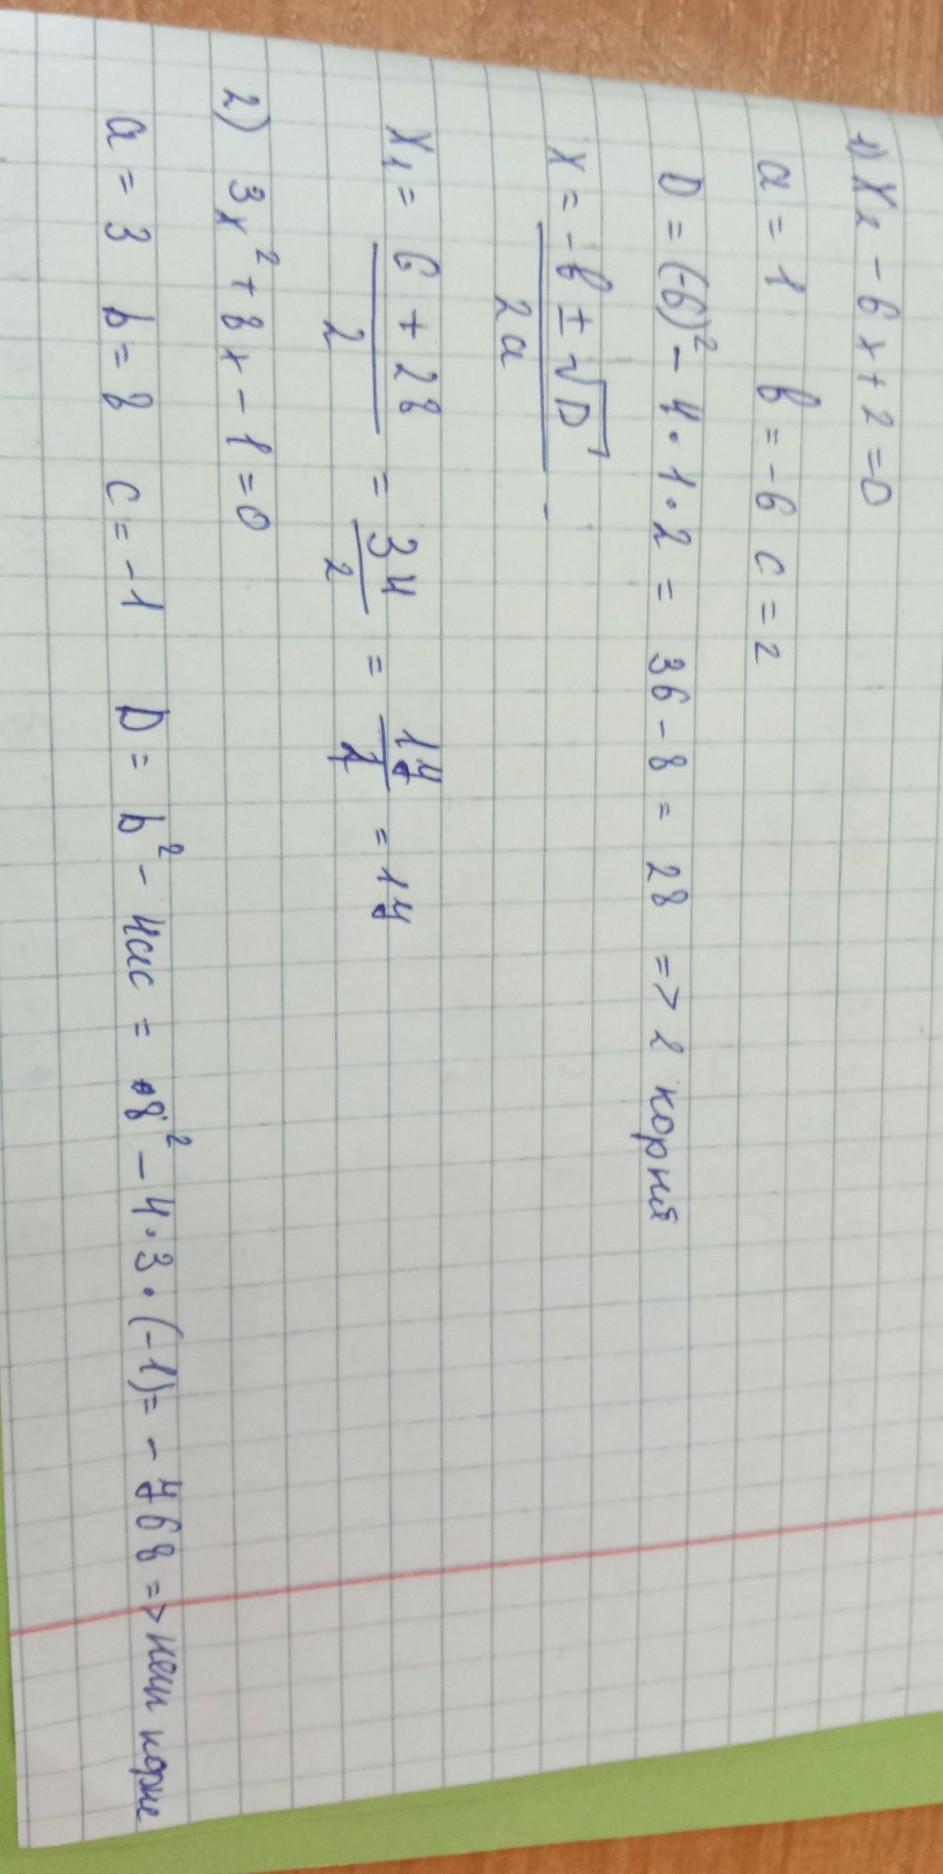 1) x₂ - 6x + 2 = 0
a = 1 b = -6 c = 2
D = (-6)² - 4 · 1 · 2 = 36 - 8 = 28 => 2 корня
x = -b ± √D / 2a
x₁ = 6 + 28 / 2 = 34 / 2 = 17 / 1 = 17
2) 3x² + 8x - 1 = 0
a = 3 b = 8 c = -1 D = b² - 4ac = 8² - 4 · 3 · (-1) = - 768 => нет корне